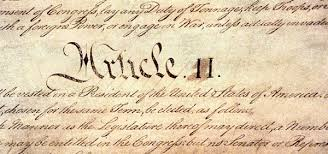 onsent of Congress, lay any Duty of Tonnage, keep Troops, or
th a foreign Power, or engage in War, unless actually invaded
Article. II.
be vested in a President of the United States of America.
chosen for the same Term, be elected, as follows
Manner as the Legislature thereof may direct, a Numb
may be entitled in the Congress: but no Senator or Repres